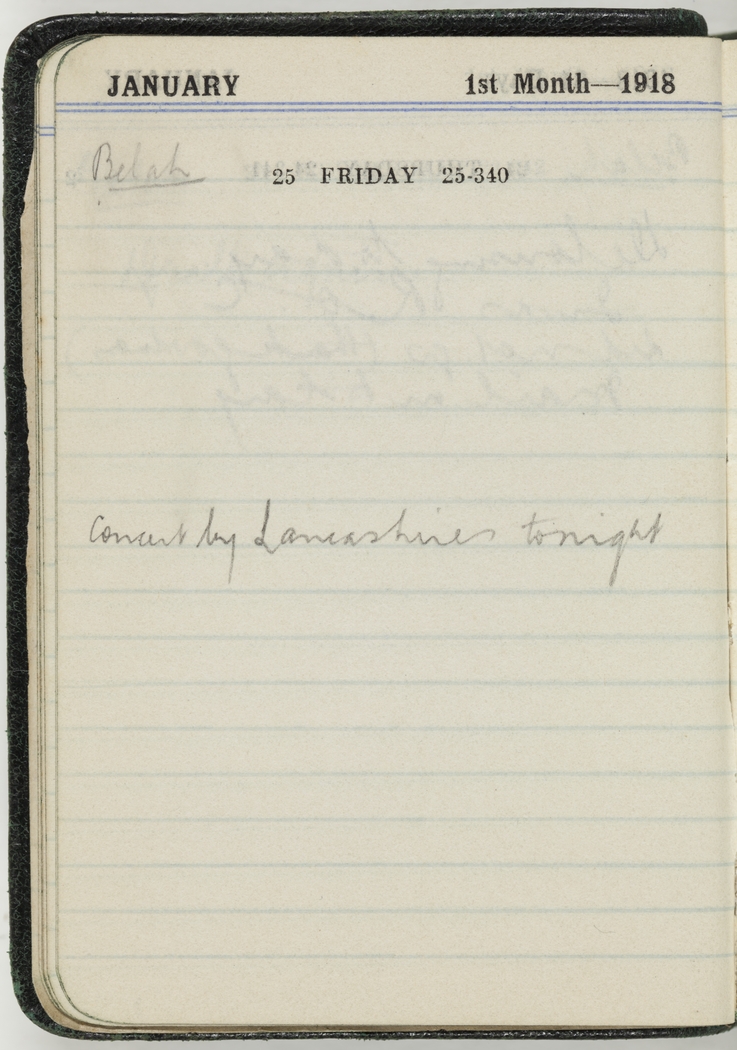 JANUARY 1st Month—1918
Belah
25 FRIDAY 25-340
Concert by Lancashires tonight